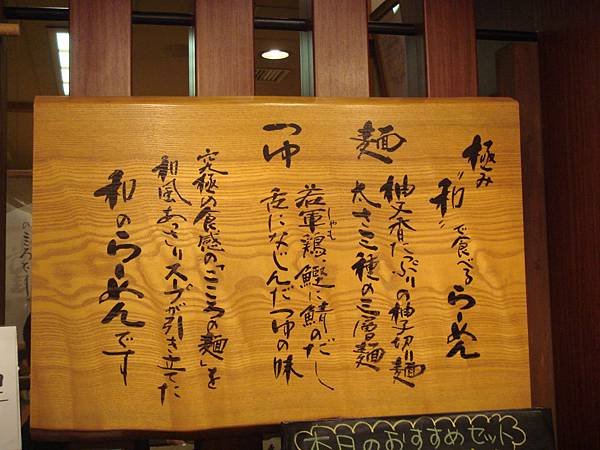 極み
"和"で食べるらーめん
麺
柚子香たっぷりの柚子切り麺
太さ三種の三層麺
つゆ
若軍鶏、鰹に鯖のだし
しゃも
舌になじんだつゆの味
究極の食感の「こころの麺」を
和風あっさりスープが引き立てた
和のらーめんです
本月のおすすめセット